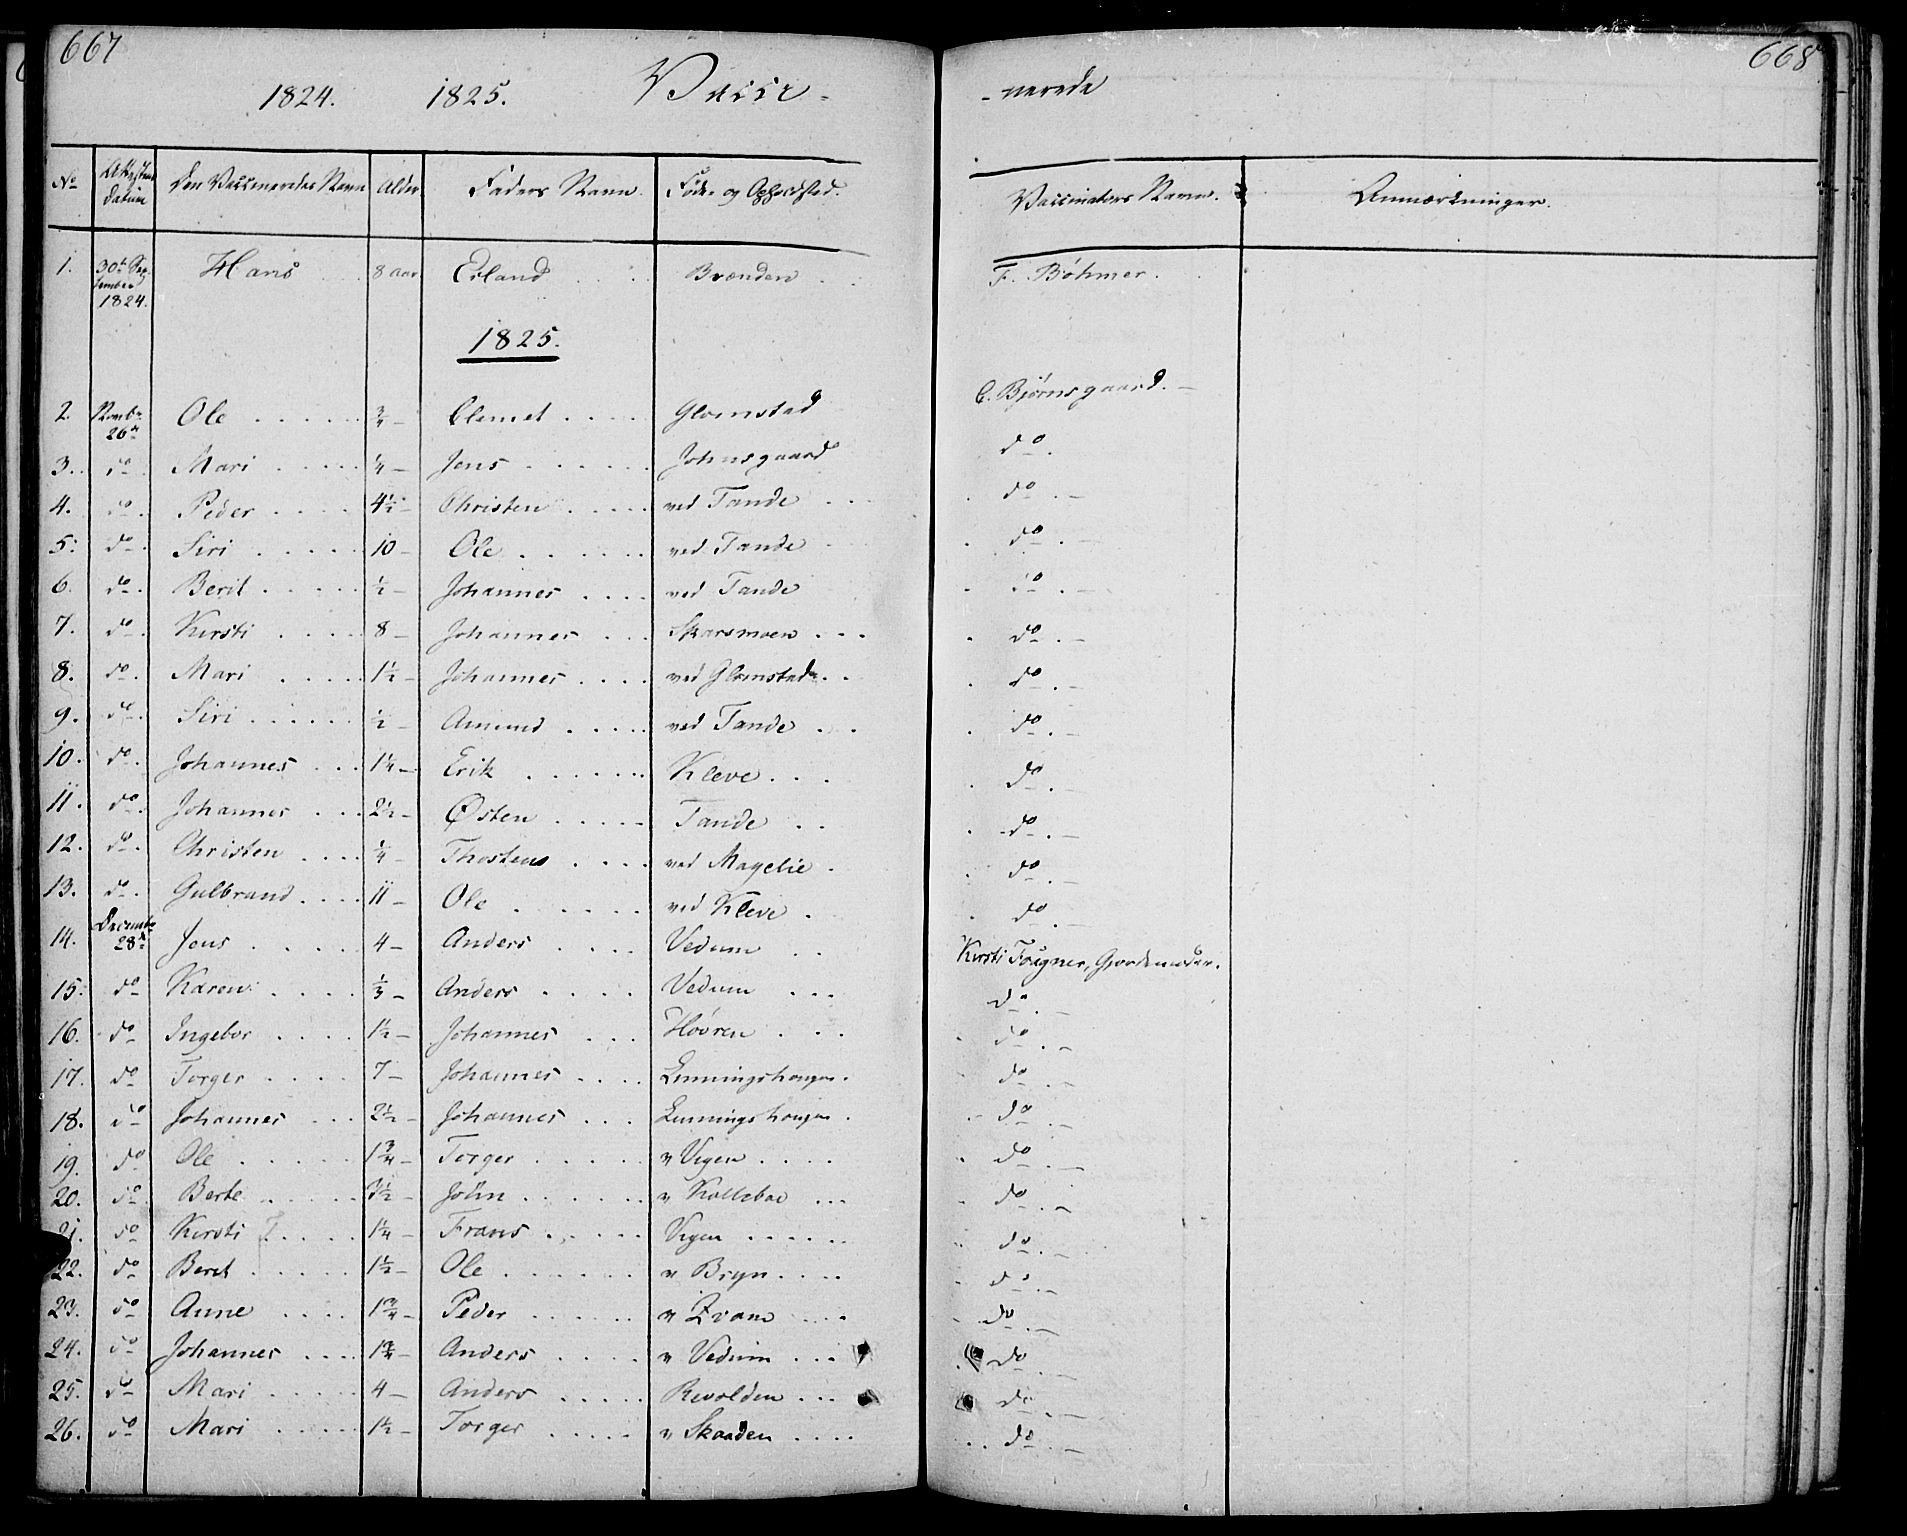 667
668
1824. 1825. Vacci- -nerede
No Attestens Datum Den Vaccineredes Navn Alder Faders Navn. Føde- og Opholdsted. Vaccinators Navn. Anmærkninger.
1. 30te September 1824. Hans 8 aar Erland Brænden F. Bøhmer.
1825.
2. Novbr 26de Ole 3/4 Clemet Glomstad C. Bjørnsgaard.
3. do Mari 1/4 Jens Johnsgaard do
4. do Peder 4 1/2 Christen ved Tande do
5. do Siri 10 Ole ved Tande do
6. do Berit 1/2 Johannes ved Tande do
7. do Kirsti 8 Johannes Skarsmoen do
8. do Mari 1 1/2 Johannes ved Glomstad do
9. do Siri 1/2 Amund ved Tande do
10. do Johannes 1 1/4 Erik Kleve do
11. do Johannes 2 1/2 Østen Tande do
12. do Christen 1/4 Thosten ved Magelie do
13. do Gulbrand 11 Ole ved Kleve do
14. Decembr 28de Jens 4 Anders Vedum Kirsti Fougner, Gjordemoder.
15. do Karen 1/3 Anders Vedum do
16. do Ingebor 1 1/2 Johannes Høvren do
17. do Torger 7 Johannes Linningshougen do
18. do Johannes 2 1/2 Johannes Linningshougen do
19. do Ole 1 3/4 Torger v Vigen do
20. do Berte 3 1/2 John v Kollsboe do
21. do Kirsti 1 1/4 Frans Vigen do
22. do Berit 1 1/2 Ole v Bryn do
23. do Anne 1 3/4 Peder v Qvam do
24. do Johannes 1 3/4 Anders v Vedum do
25. do Mari 4 Anders Revolden do
26. do Mari 1 1/2 Torger v Skaaden do